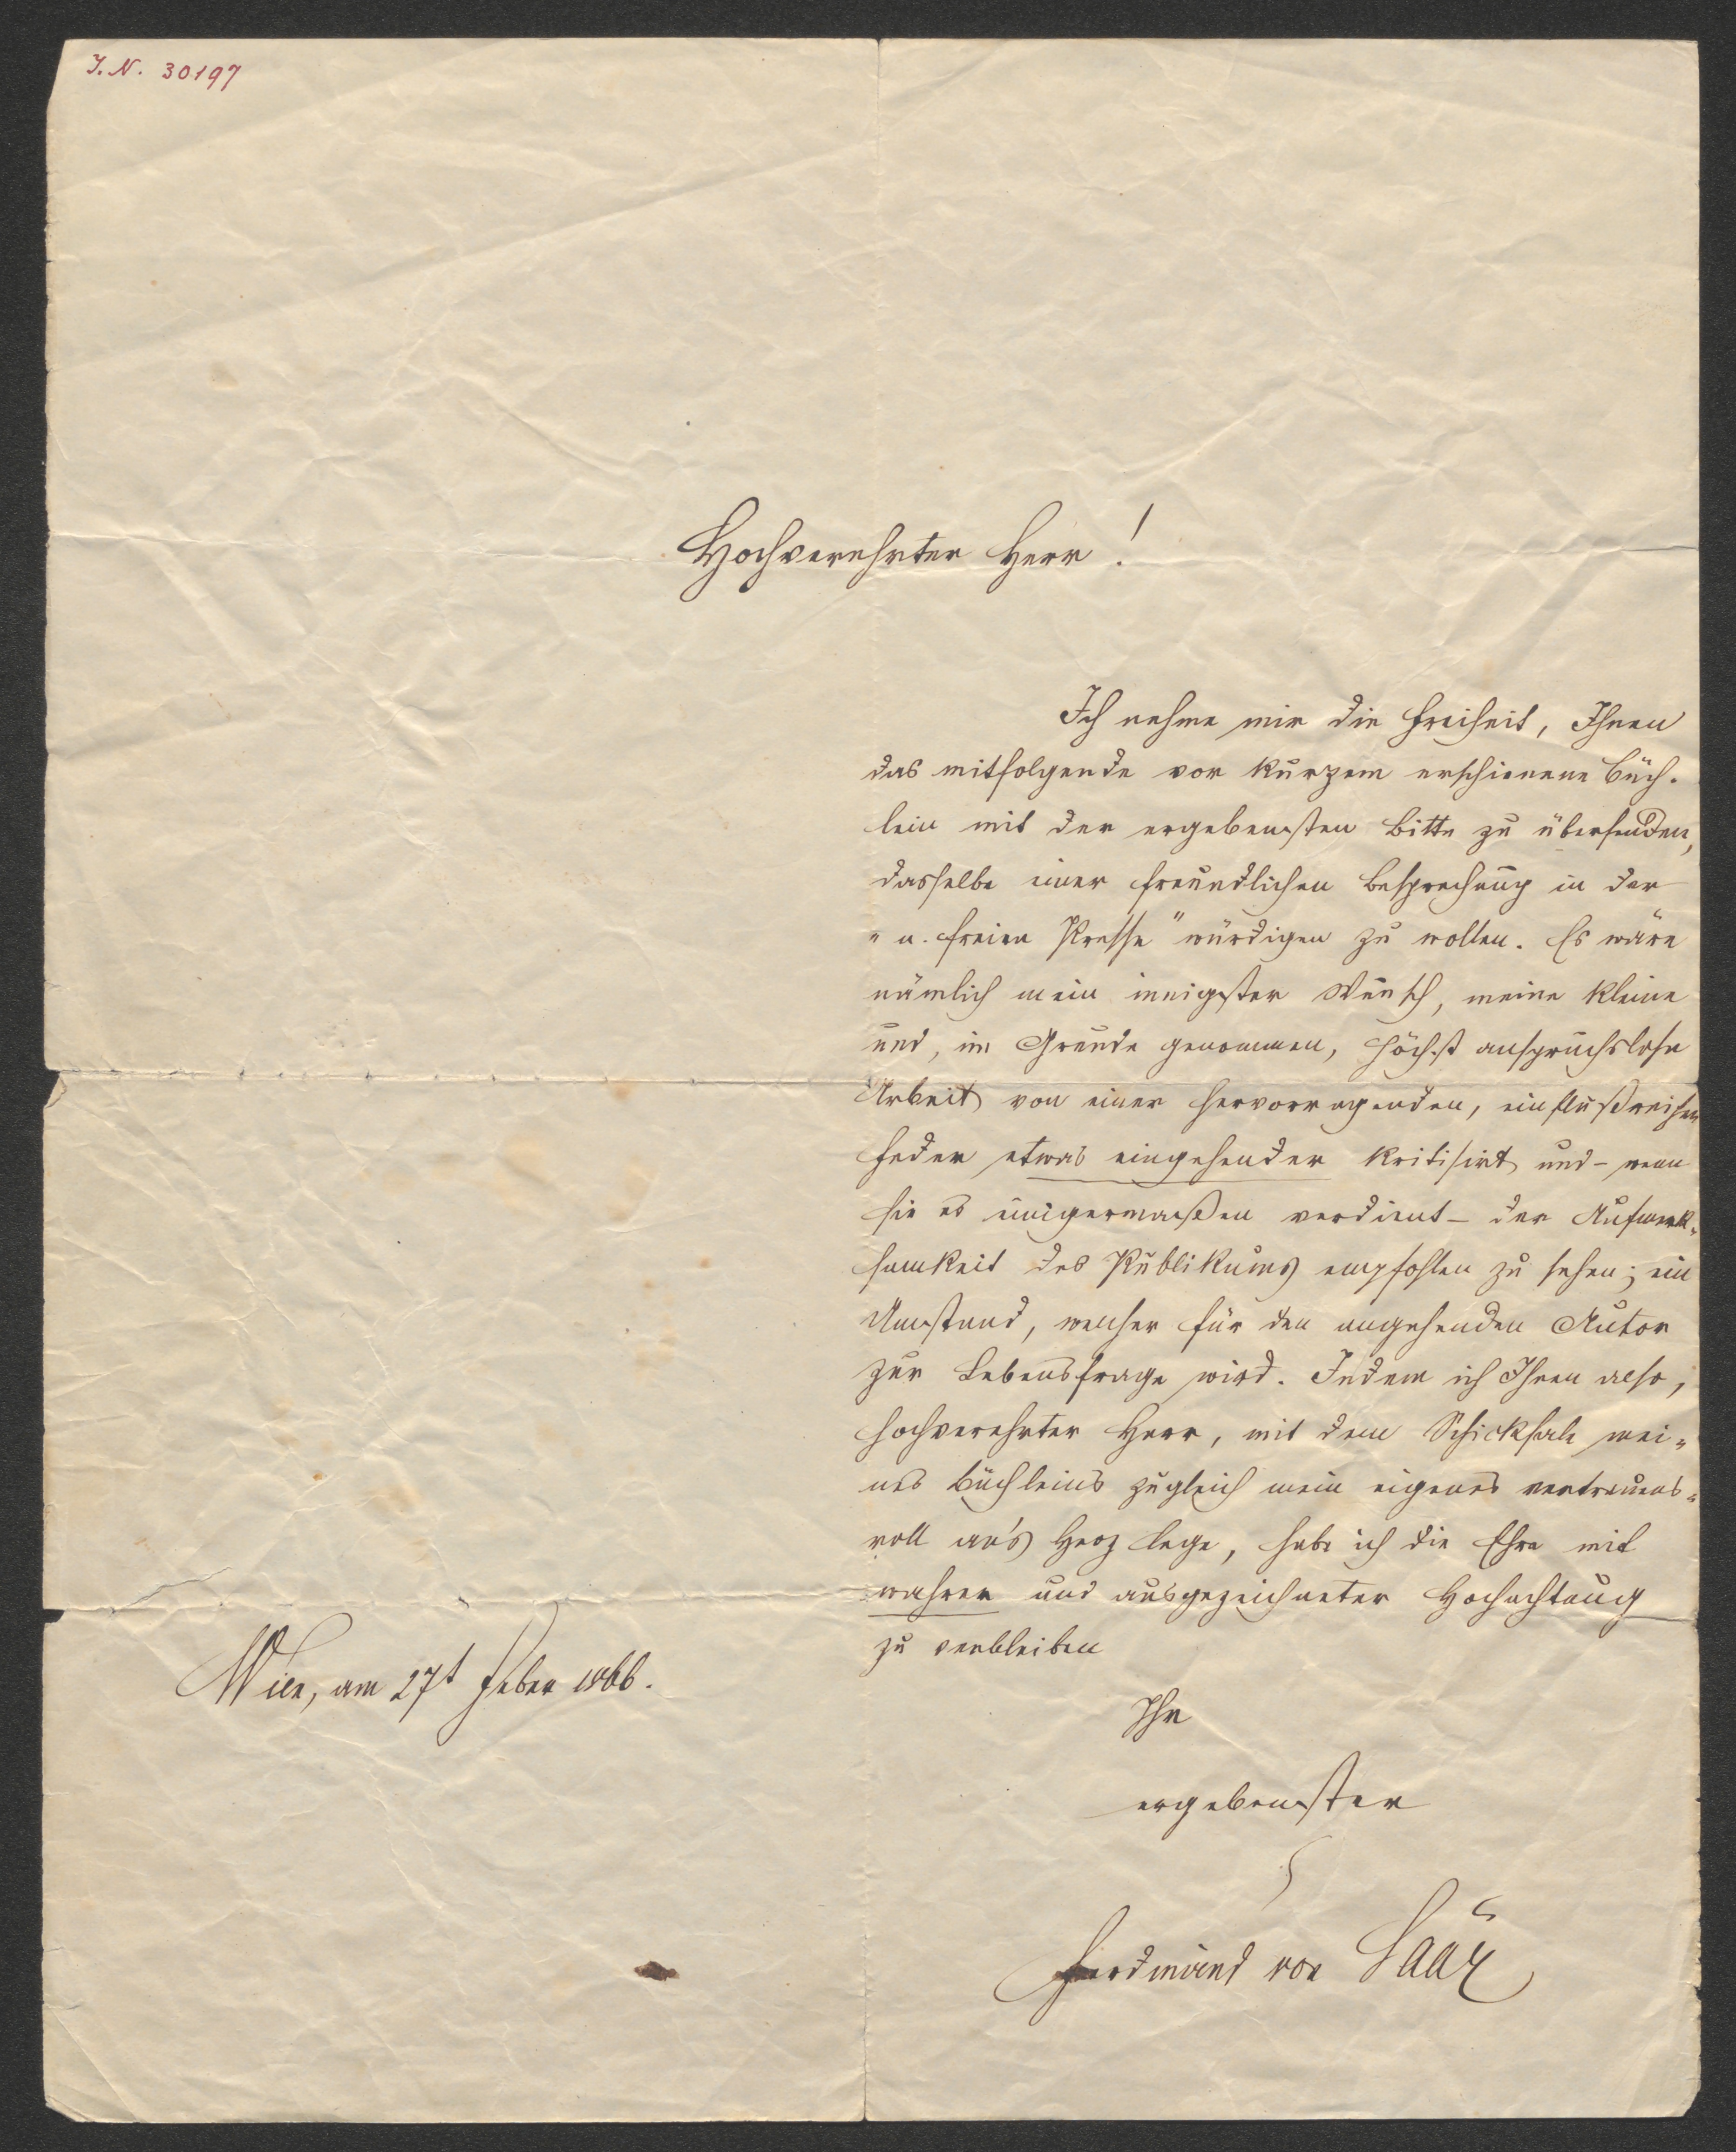 I.N. 30197
Hochverehrter Herr!
Ich nehme mir die Freiheit, Ihnen
das mitfolgende vor kurzem erschienene Büch-
lein mit der ergebensten Bitte zu übersenden,
dasselbe einer freundlichen Besprechung in der
„n. freien Presse" würdigen zu wollen. Es wäre
nämlich mein innigster Wunsch, meine kleine
und, im Grunde genommen, höchst anspruchslose
Arbeit von einer hervorragenden, einflußreichen
Feder etwas eingehender kritisirt und – wenn
sie es einigermaßen verdient – der Aufmerk-
samkeit des Publikums empfohlen zu sehen; ein
Umstand, welcher für den angehenden Autor
zur Lebensfrage wird. Indem ich Ihnen also,
hochverehrter Herr, mit dem Schicksale mei-
nes Büchleins zugleich mein eigenes vertrauens-
voll an's Herz lege, habe ich die Ehre mit
wahrer und ausgezeichneter Hochachtung
zu verbleiben
Wien, am 27t Feber 1866.
Ihr
ergebenster
Ferdinand von Saar